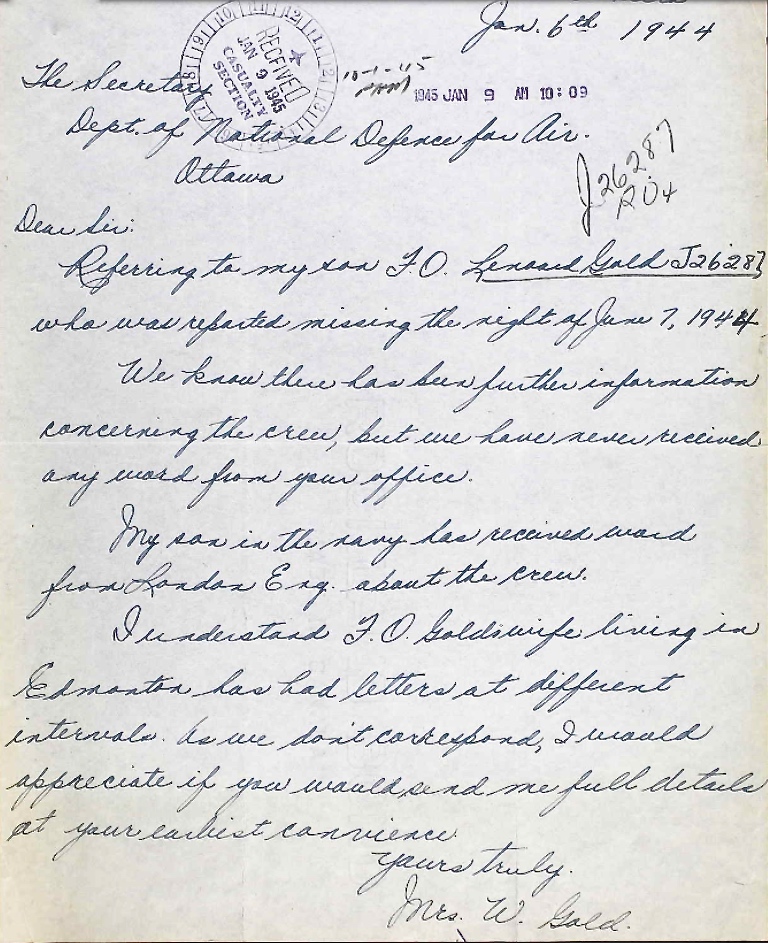 Jan. 6th 1944
RECEIVED
JAN 9 1945
CASUALTY
SECTION
10-1-45
1945 JAN 9 AM 10:09
The Secretary
Dept. of National Defence for Air.
Ottawa
J26287
Dear Sir:
Referring to my son F.O. Lenoard Gold J26287
who was reported missing the night of June 7, 1944
We know there has been further information
concerning the crew, but we have never received
any word from your office.
My son in the navy has received word
from London Eng. about the crew.
I understand F.O. Golds wife living in
Edmonton has had letters at different
intervals. As we don't correspond, I would
appreciate if you would send me full details
at your earliest convience
Yours truly.
Mrs. W. Gold.